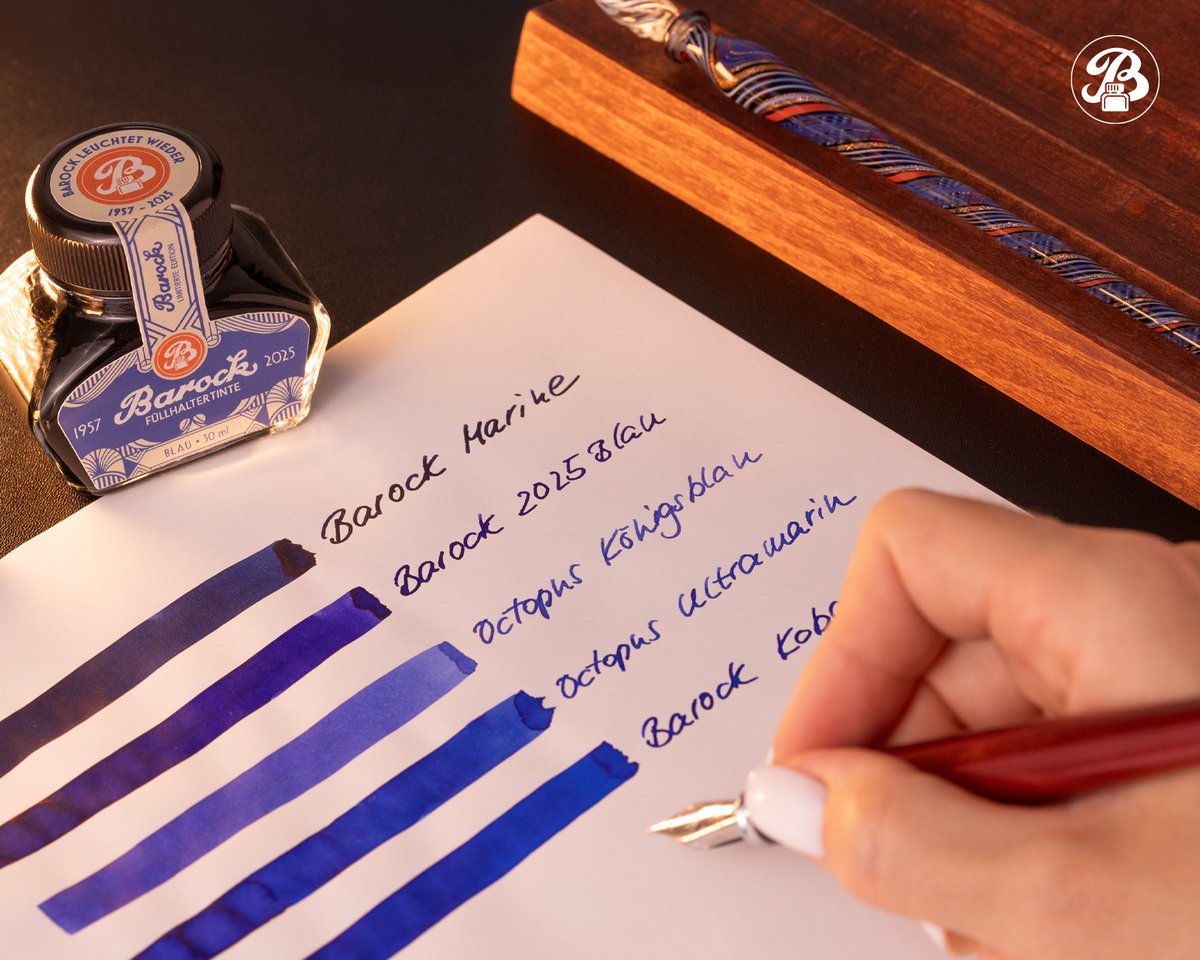 BAROCK LEUCHTET WIEDER
1957 - 2025
Barock
LIMITIERTE EDITION
B
1957 Barock 2025
FÜLLHALTERTINTE
BLAU • 30 ml
B
Barock Marine
Barock 2025 Blau
Octopus Königsblau
Octopus Ultramarin
Barock